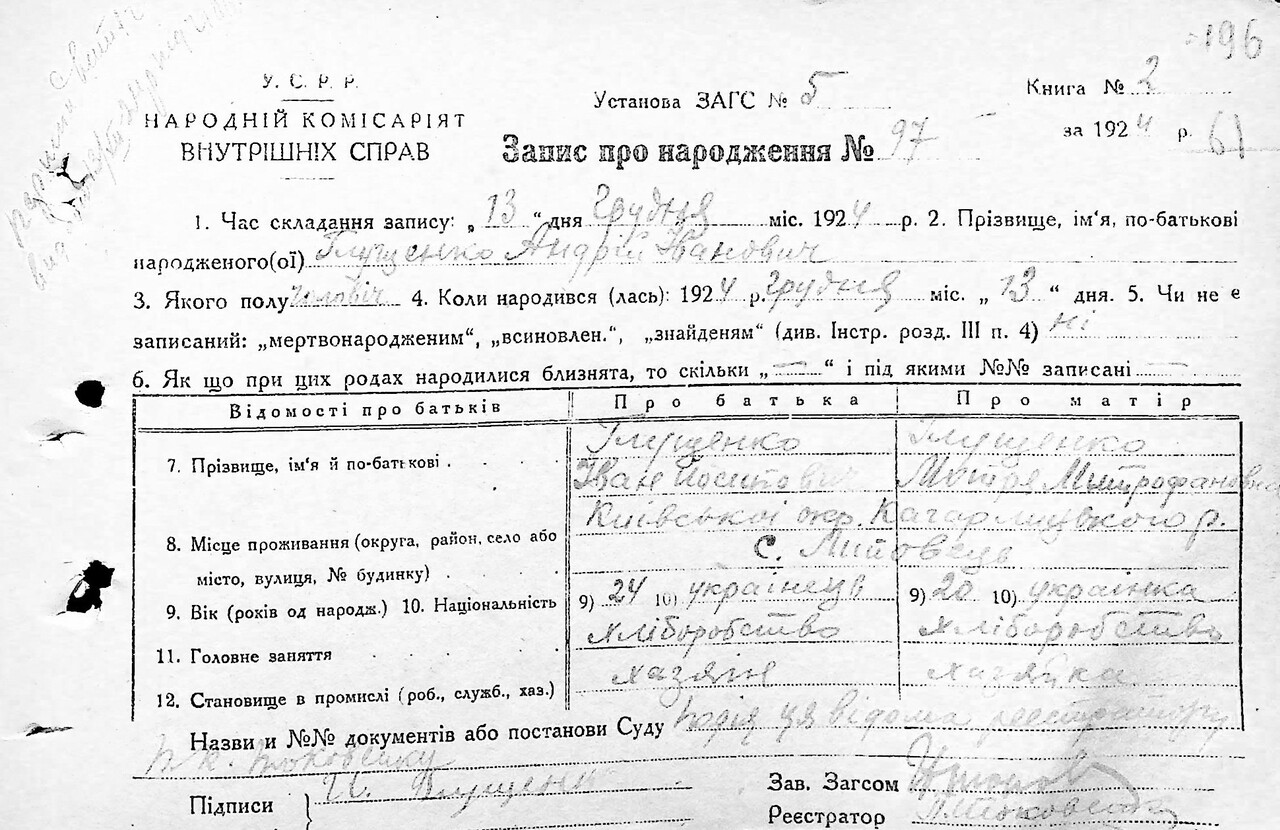 196
У. С. Р. Р.
НАРОДНІЙ КОМІСАРІЯТ
ВНУТРІШНІХ СПРАВ
Установа ЗАГС № 5
Книга № 2
за 1924 р. 61
Запис про народження № 97
1. Час складання запису: „13“ дня Грудня міс. 1924 р. 2. Прізвище, ім‘я, по-батькові
народженого(ої) Глущенко Андрій Іванович
3. Якого полу чоловіч 4. Коли народився (лась): 1924 р. Грудня міс. „13“ дня. 5. Чи не є
записаний: „мертвонародженим“, „всиновлен.“, „знайденям“ (див. Інстр. розд. III п. 4) ні
6. Як що при цих родах народилися близнята, то скільки „—“ і під якими №№ записані —
Відомості про батьків Про батька Про матір
7. Прізвище, ім‘я й по-батькові Глущенко Глущенко
Іван Йосипович Мотря Митрофановна
8. Місце проживання (округа, район, село або Київської окр. Кагарлицького р.
місто, вулиця, № будинку) с. Липовець
9. Вік (років од народж.) 10. Національність 9) 24 10) українець 9) 20 10) українка
11. Головне заняття хліборобство хліборобство
12. Становище в промислі (роб., служб., хаз.) хазяїн хазяйка
Назви и №№ документів або постанови Суду Подія ця відома реєстратору
Підписи Глущенко
Зав. Загсом
Реєстратор